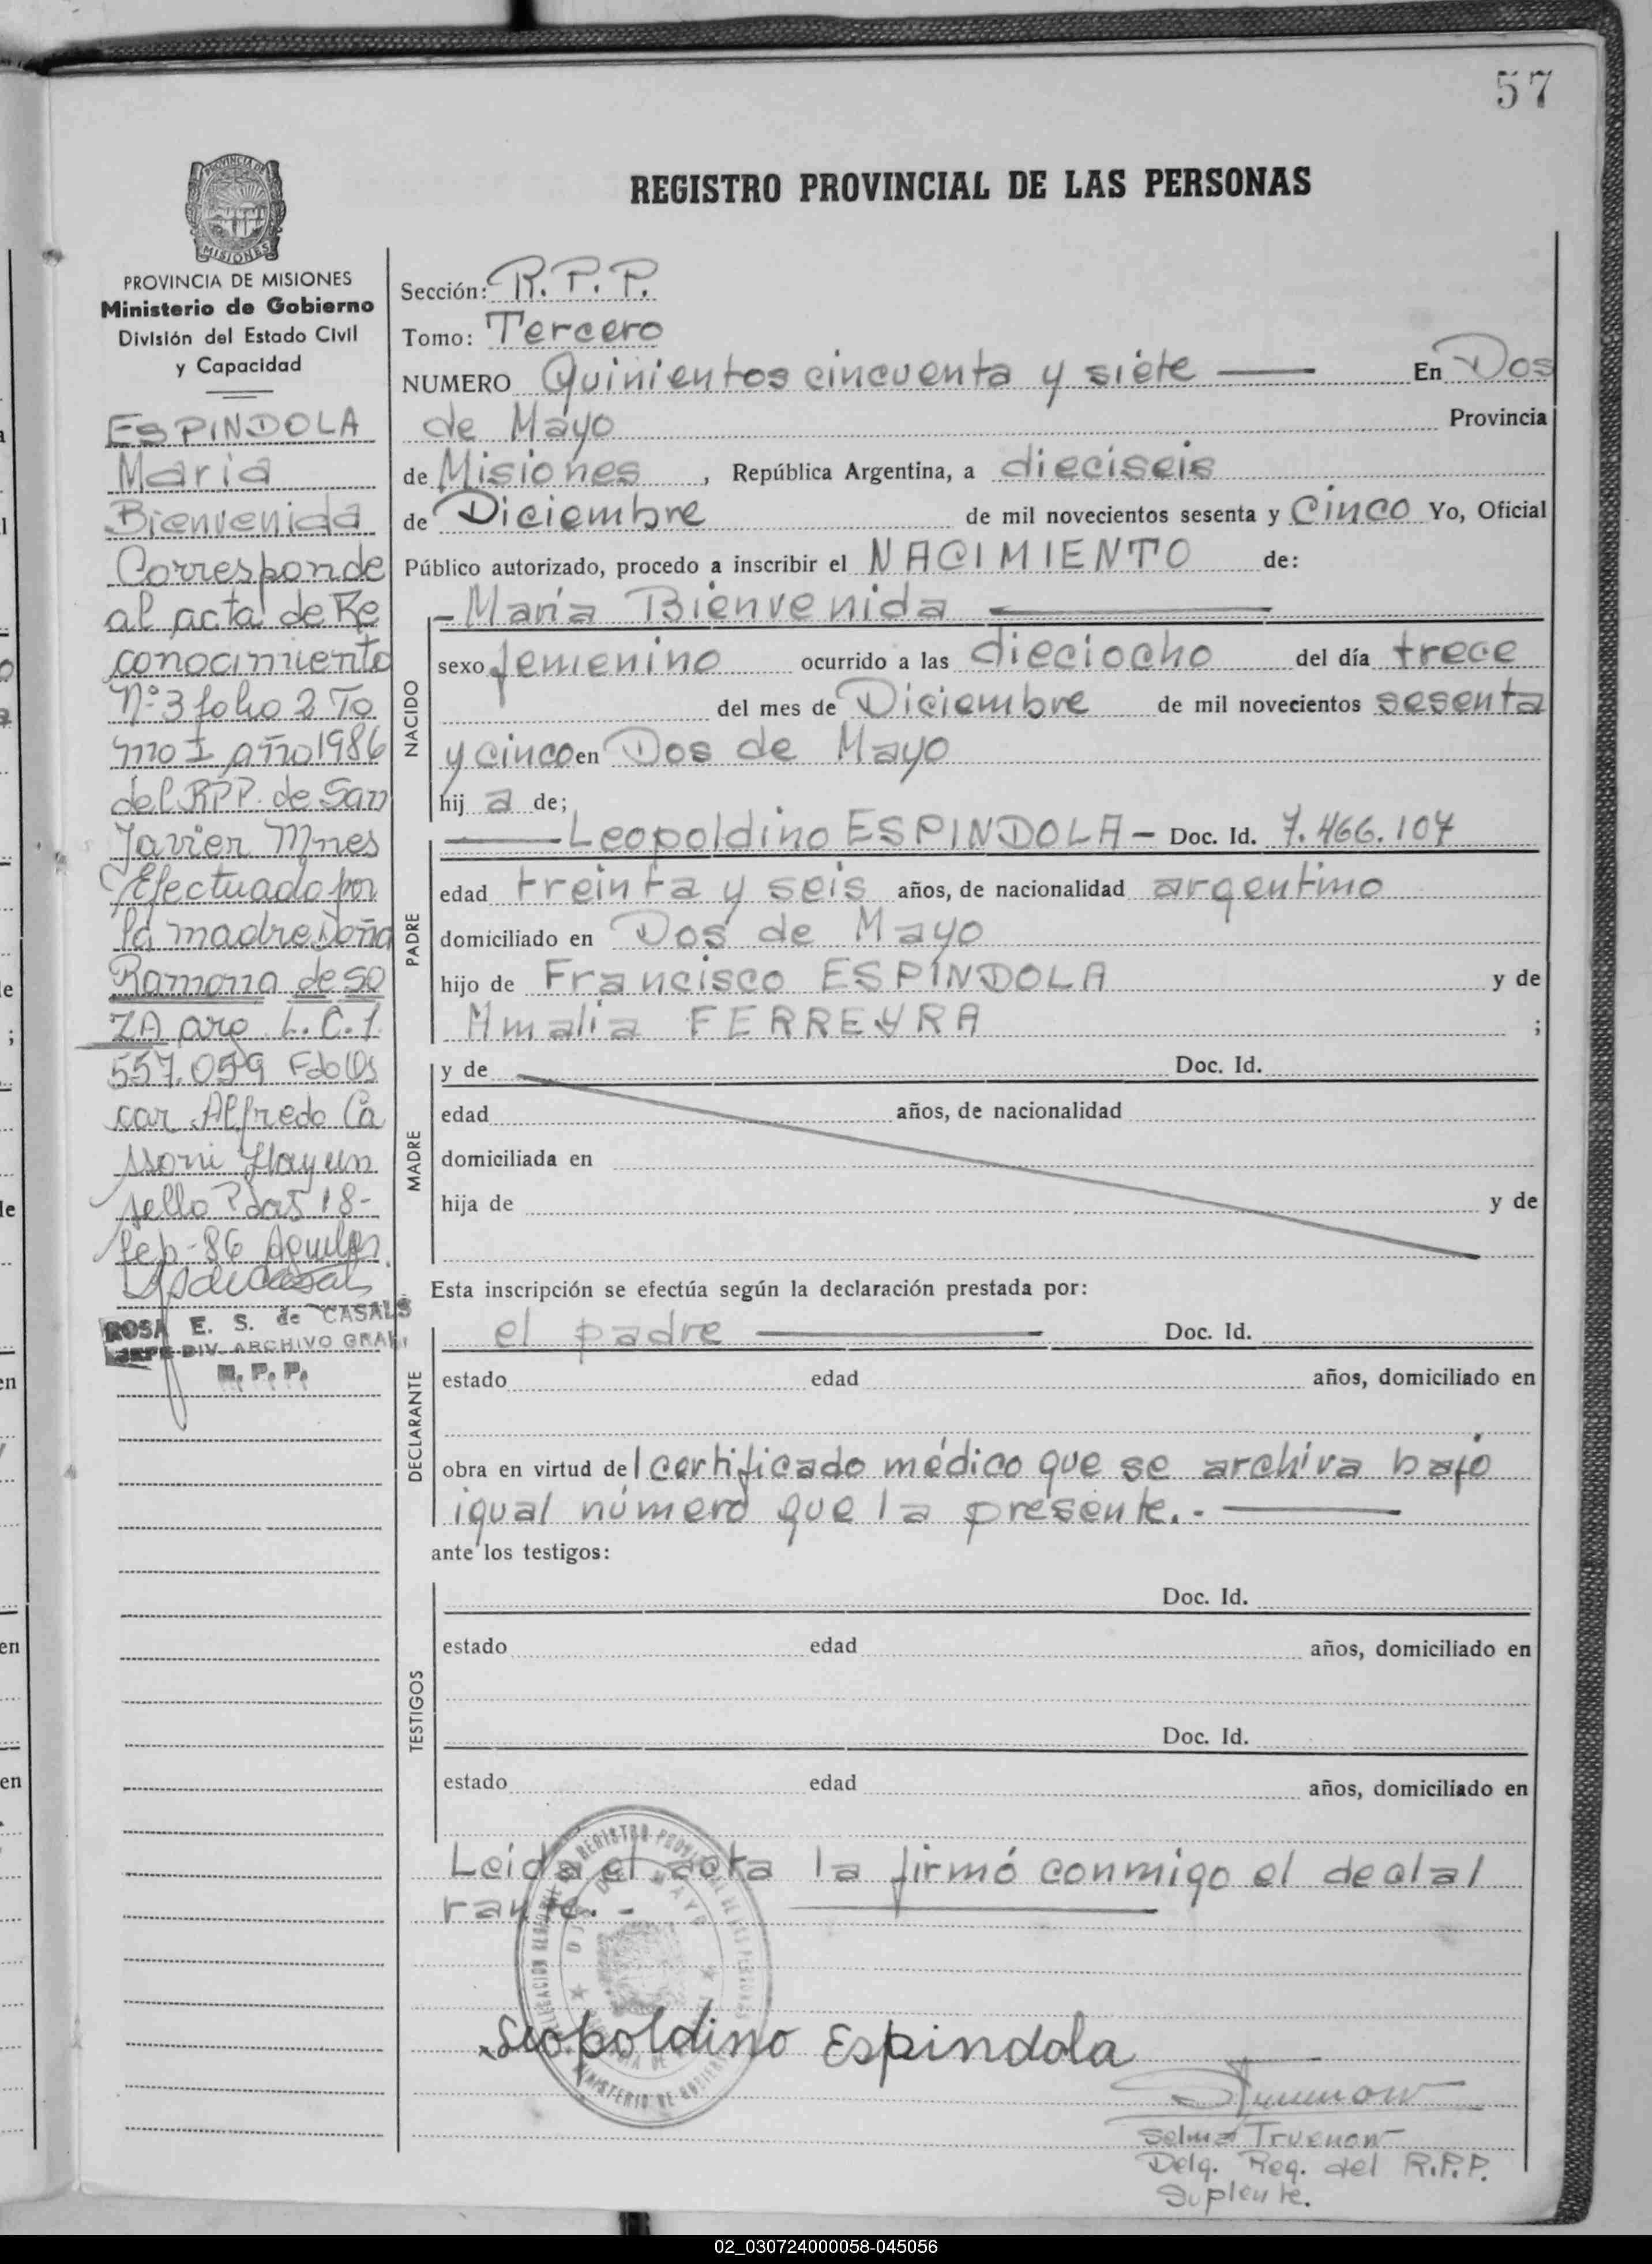 57
PROVINCIA DE
MISIONES
REGISTRO PROVINCIAL DE LAS PERSONAS
PROVINCIA DE MISIONES
Ministerio de Gobierno
División del Estado Civil
y Capacidad
ESPINDOLA
Maria
Bienvenida
Corresponde
al acta de Re
conocimiento
Nº 3 folio 2 To
mo I año 1986
del RPP. de San
Javier Mnes
Efectuado por
la madre Doña
Ramona de so
ZA arg. L.C. 1.
557.059 Fdo Os
car Alfredo Ca
ssoni Hay un
sello Pdas 18-
feb-86
ROSA E. S. de CASALS
JEFE DIV. ARCHIVO GRAL
R. P. P.
Sección: R. P. P.
Tomo: Tercero
NUMERO Quinientos cincuenta y siete En Dos
de Mayo Provincia
de Misiones, República Argentina, a dieciseis
de Diciembre de mil novecientos sesenta y Cinco Yo, Oficial
Público autorizado, procedo a inscribir el NACIMIENTO de:
- María Bienvenida
NACIDO
sexo femenino ocurrido a las dieciocho del día trece
del mes de Diciembre de mil novecientos sesenta
y cinco en Dos de Mayo
hij a de;
PADRE
Leopoldino ESPINDOLA - Doc. Id. 7.466.107
edad treinta y seis años, de nacionalidad argentino
domiciliado en Dos de Mayo
hijo de Francisco ESPÍNDOLA y de
Amalia FERREYRA ;
MADRE
y de Doc. Id.
edad años, de nacionalidad
domiciliada en
hija de y de
Esta inscripción se efectúa según la declaración prestada por:
DECLARANTE
el padre Doc. Id.
estado edad años, domiciliado en
obra en virtud del certificado médico que se archiva bajo
igual número que la presente.-
ante los testigos:
TESTIGOS
Doc. Id.
estado edad años, domiciliado en
Doc. Id.
estado edad años, domiciliado en
Leida el acta la firmó conmigo el decla
rante.-
Leopoldino Espindola
Selma Truenow
Delg. Reg. del R.P.P.
Suplente.
02_030724000058-045056